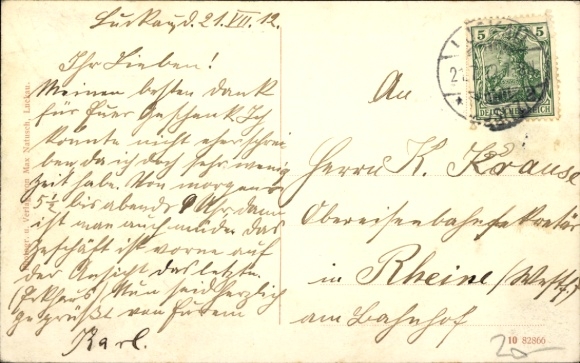 Luckau, d. 21. VII. 12.
Ihr Lieben!
Meinen besten Dank
für Euer Geschenk Ich
konnte nicht eher schrei
ben, da ich doch sehr wenig
Zeit habe. Von morgens
5½ bis abends 9 Uhr, dann
ist man auch müde. Das
Geschäft ist vorne auf
der Ansicht das letzte
(Eckhaus) Nun seid herzlich
gegrüßt von Eurem
Karl.
u. Verlag von Max Natusch, Luckau.
An
Herrn K. Krause
Obereisenbahnsekretär
in Rheine (Westf.)
am Bahnhof
5 5
10 82866
20